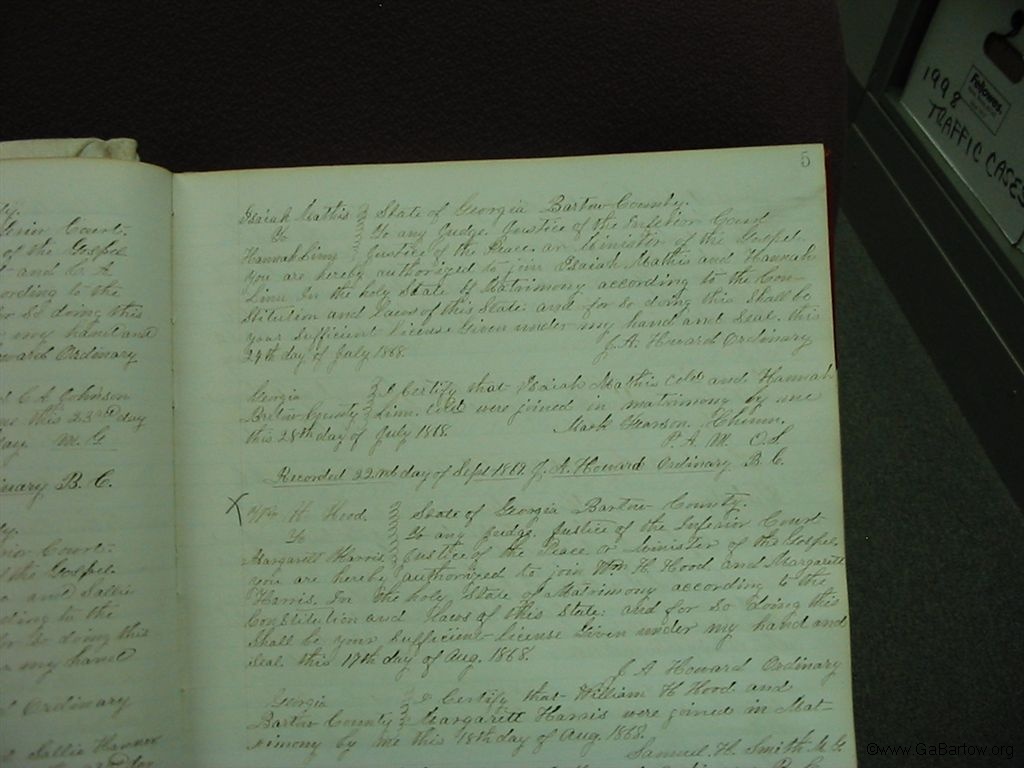 5
Isaiah Mathis State of Georgia Bartow County.
To To any Judge. Justice of the Inferior Court
Hannah Linn Justice of the Peace or Minister of the Gospel.
You are hereby authorized to join Isaiah Mathis and Hannah
Linn In the holy State of Matrimony according to the Con-
stitution and Laws of this State and for so doing this Shall be
your Sufficient license Given under my hand and Seal. this
24th day of July 1868. J. A. Howard Ordinary
Georgia I Certify that Isaiah Mathis Cold and Hannah
Bartow County Linn. Cold were joined in matrimony by me
this 28th day of July 1868. Mark
P. A. M.
Recorded 22nd day of Sept J. A. Howard Ordinary B. C.
X Wm H Hood. State of Georgia Bartow County.
To To any Judge. Justice of the Inferior Court
Margarett Harris Justice of the Peace or Minister of the Gospel
you are hereby authorized to join Wm H. Hood and Margarett
Harris. In the holy State of Matrimony according to the
Constitution and Laws of this State: and for so doing this
Shall be your Sufficient license Given under my hand and
Seal this 17th day of Aug. 1868.
J A Howard Ordinary
Georgia I Certify that William H Hood and
Bartow County Margarett Harris were joined in Mat-
rimony by me this 18th day of Aug 1868.
Samuel H. Smith M G
Court.
of the Gospel
and
ording to the
or so doing this
my hand and
Howard Ordinary
C A Johnson
this 23rd day
M. G
Ordinary B. C.
Court.
the Gospel.
and Sallie
ding to the
or so doing this
my hand
Ordinary
Sallie
1998
TRAFFIC CASES
Fellowes
©www.GaBartow.org